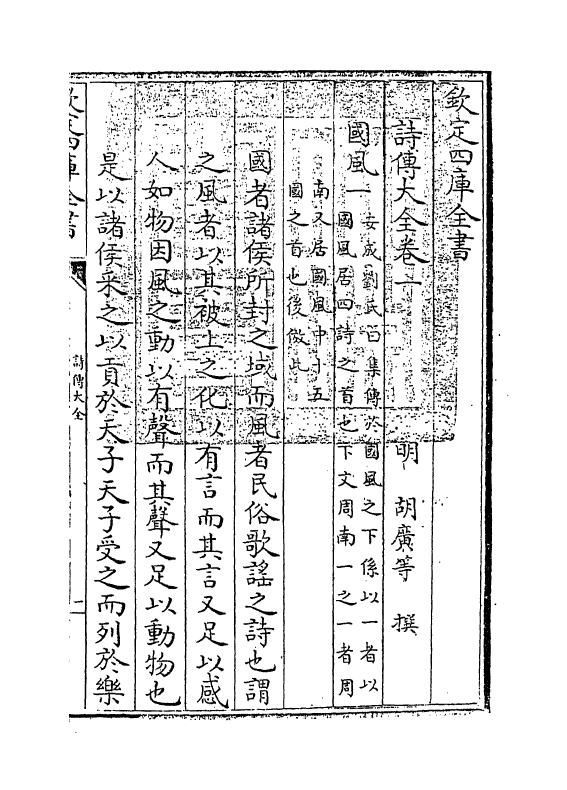 欽定四庫全書
詩傳大全卷一
明 胡廣等 撰
國風一
安成劉氏曰集傳於國風之下係以一者以
國風居四詩之首也下文周南一之一者周
南又居國風中十五
國之首也後倣此
國者諸侯所封之域而風者民俗歌謡之詩也謂
之風者以其被上之化以有言而其言又足以感
人如物因風之動以有聲而其聲又足以動物也
是以諸侯采之以貢於天子天子受之而列於樂
欽定四庫全書
詩傳大全